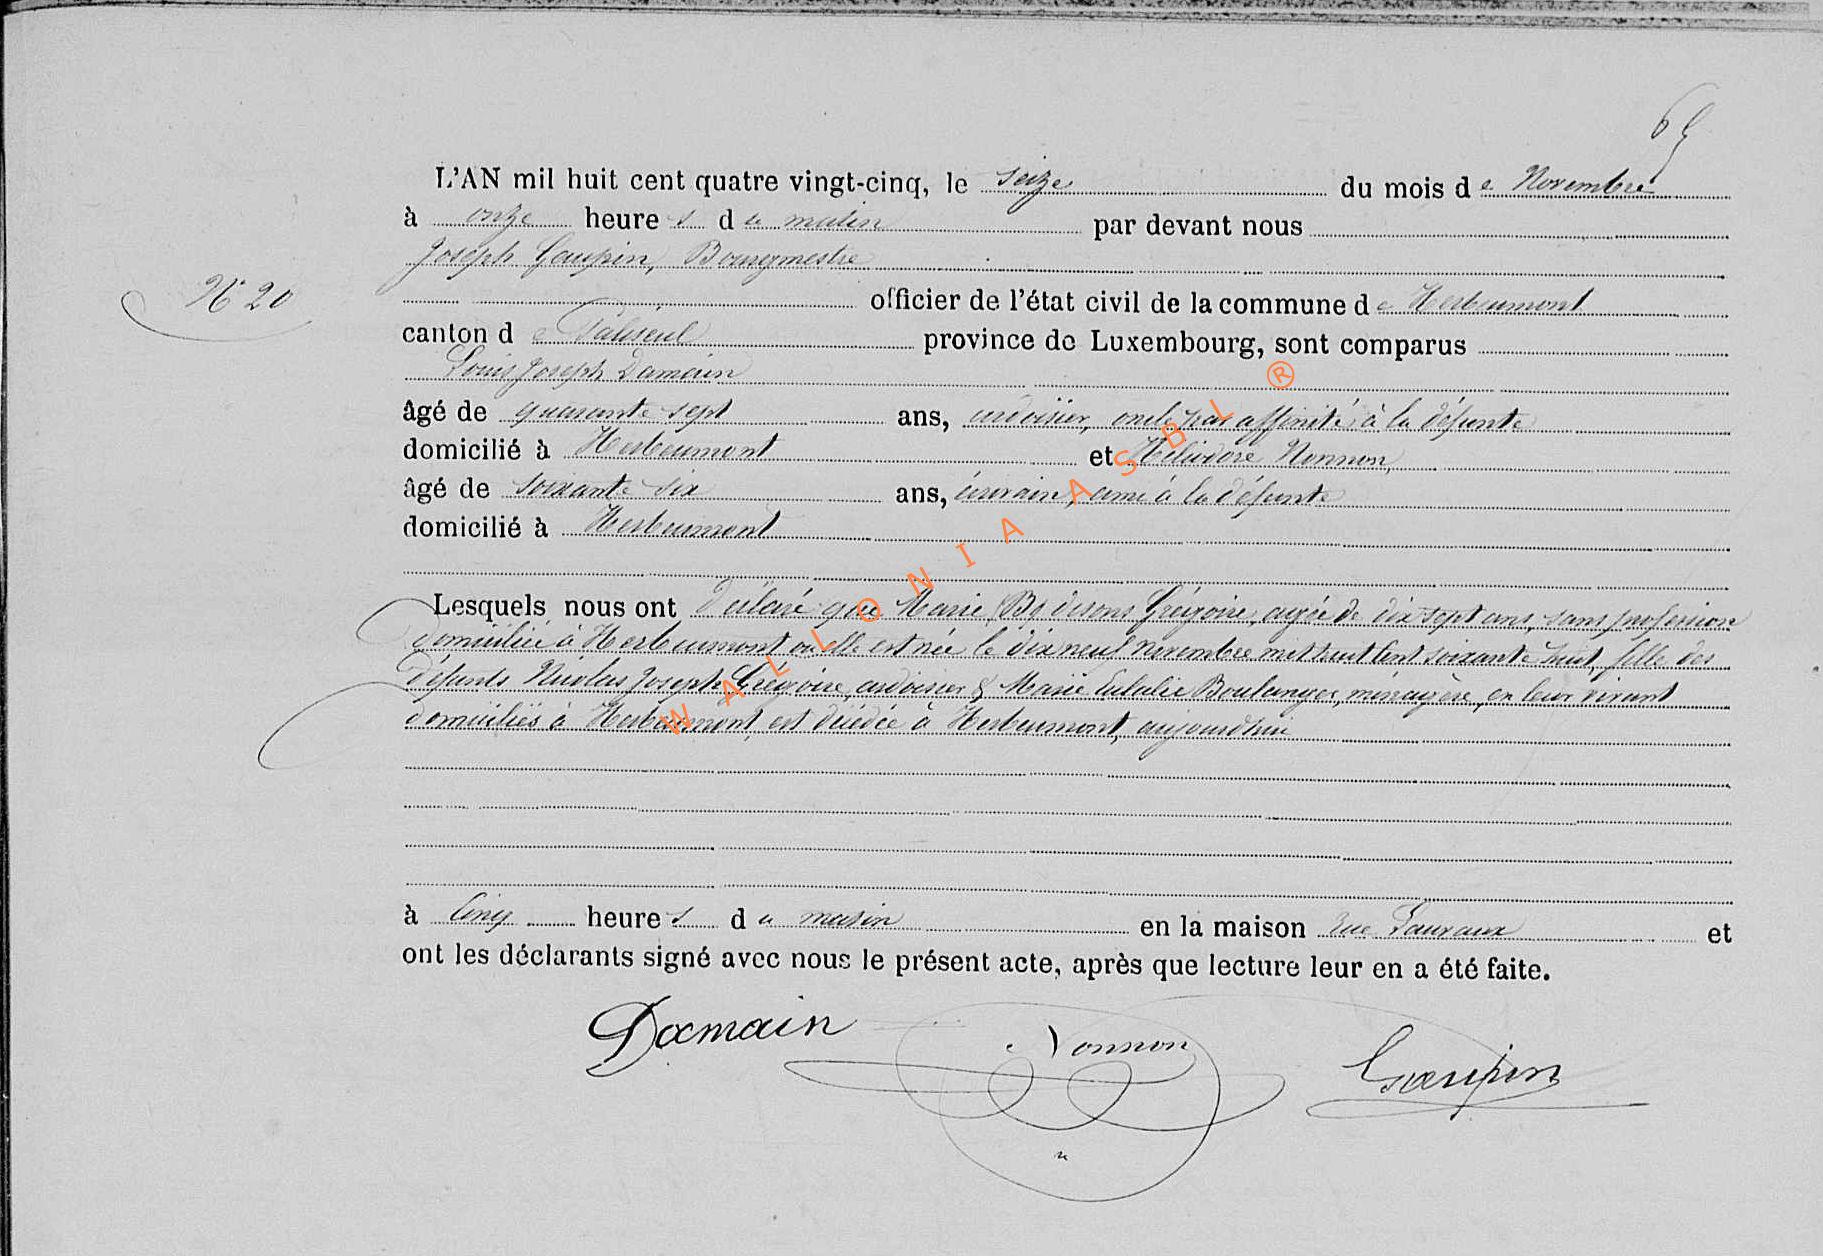 65
L'AN mil huit cent quatre vingt-cinq, le seize du mois de Novembre
à onze heures du matin par devant nous
Joseph Gaupin, Bourgmestre
N° 20
officier de l'état civil de la commune de Herbeumont
canton de Paliseul province de Luxembourg, sont comparus
Louis Joseph Damain
âgé de quarante sept ans, ardoisier, oncle par affinité à la défunte
domicilié à Herbeumont et Héliodore Nonnon,
âgé de soixante six ans, écrivain, ami à la défunte
domicilié à Herbeumont
Lesquels nous ont déclaré que Marie Grégoire, agée de dix sept ans, sans profession
domiciliée à Herbeumont ou elle est née le dix neuf novembre mil huit cent soixante huit, fille des
défunts Nicolas Joseph Grégoire, ardoisier & Marie Eulalie Boulanger, ménagère, en leur vivant
domiciliés à Herbeumont, est décédée à Herbeumont, aujourd'hui
à cinq heures du matin en la maison rue Lauvaux et
ont les déclarants signé avec nous le présent acte, après que lecture leur en a été faite.
Damain Nonnon Gaupin
WALLONIA ASBL ®